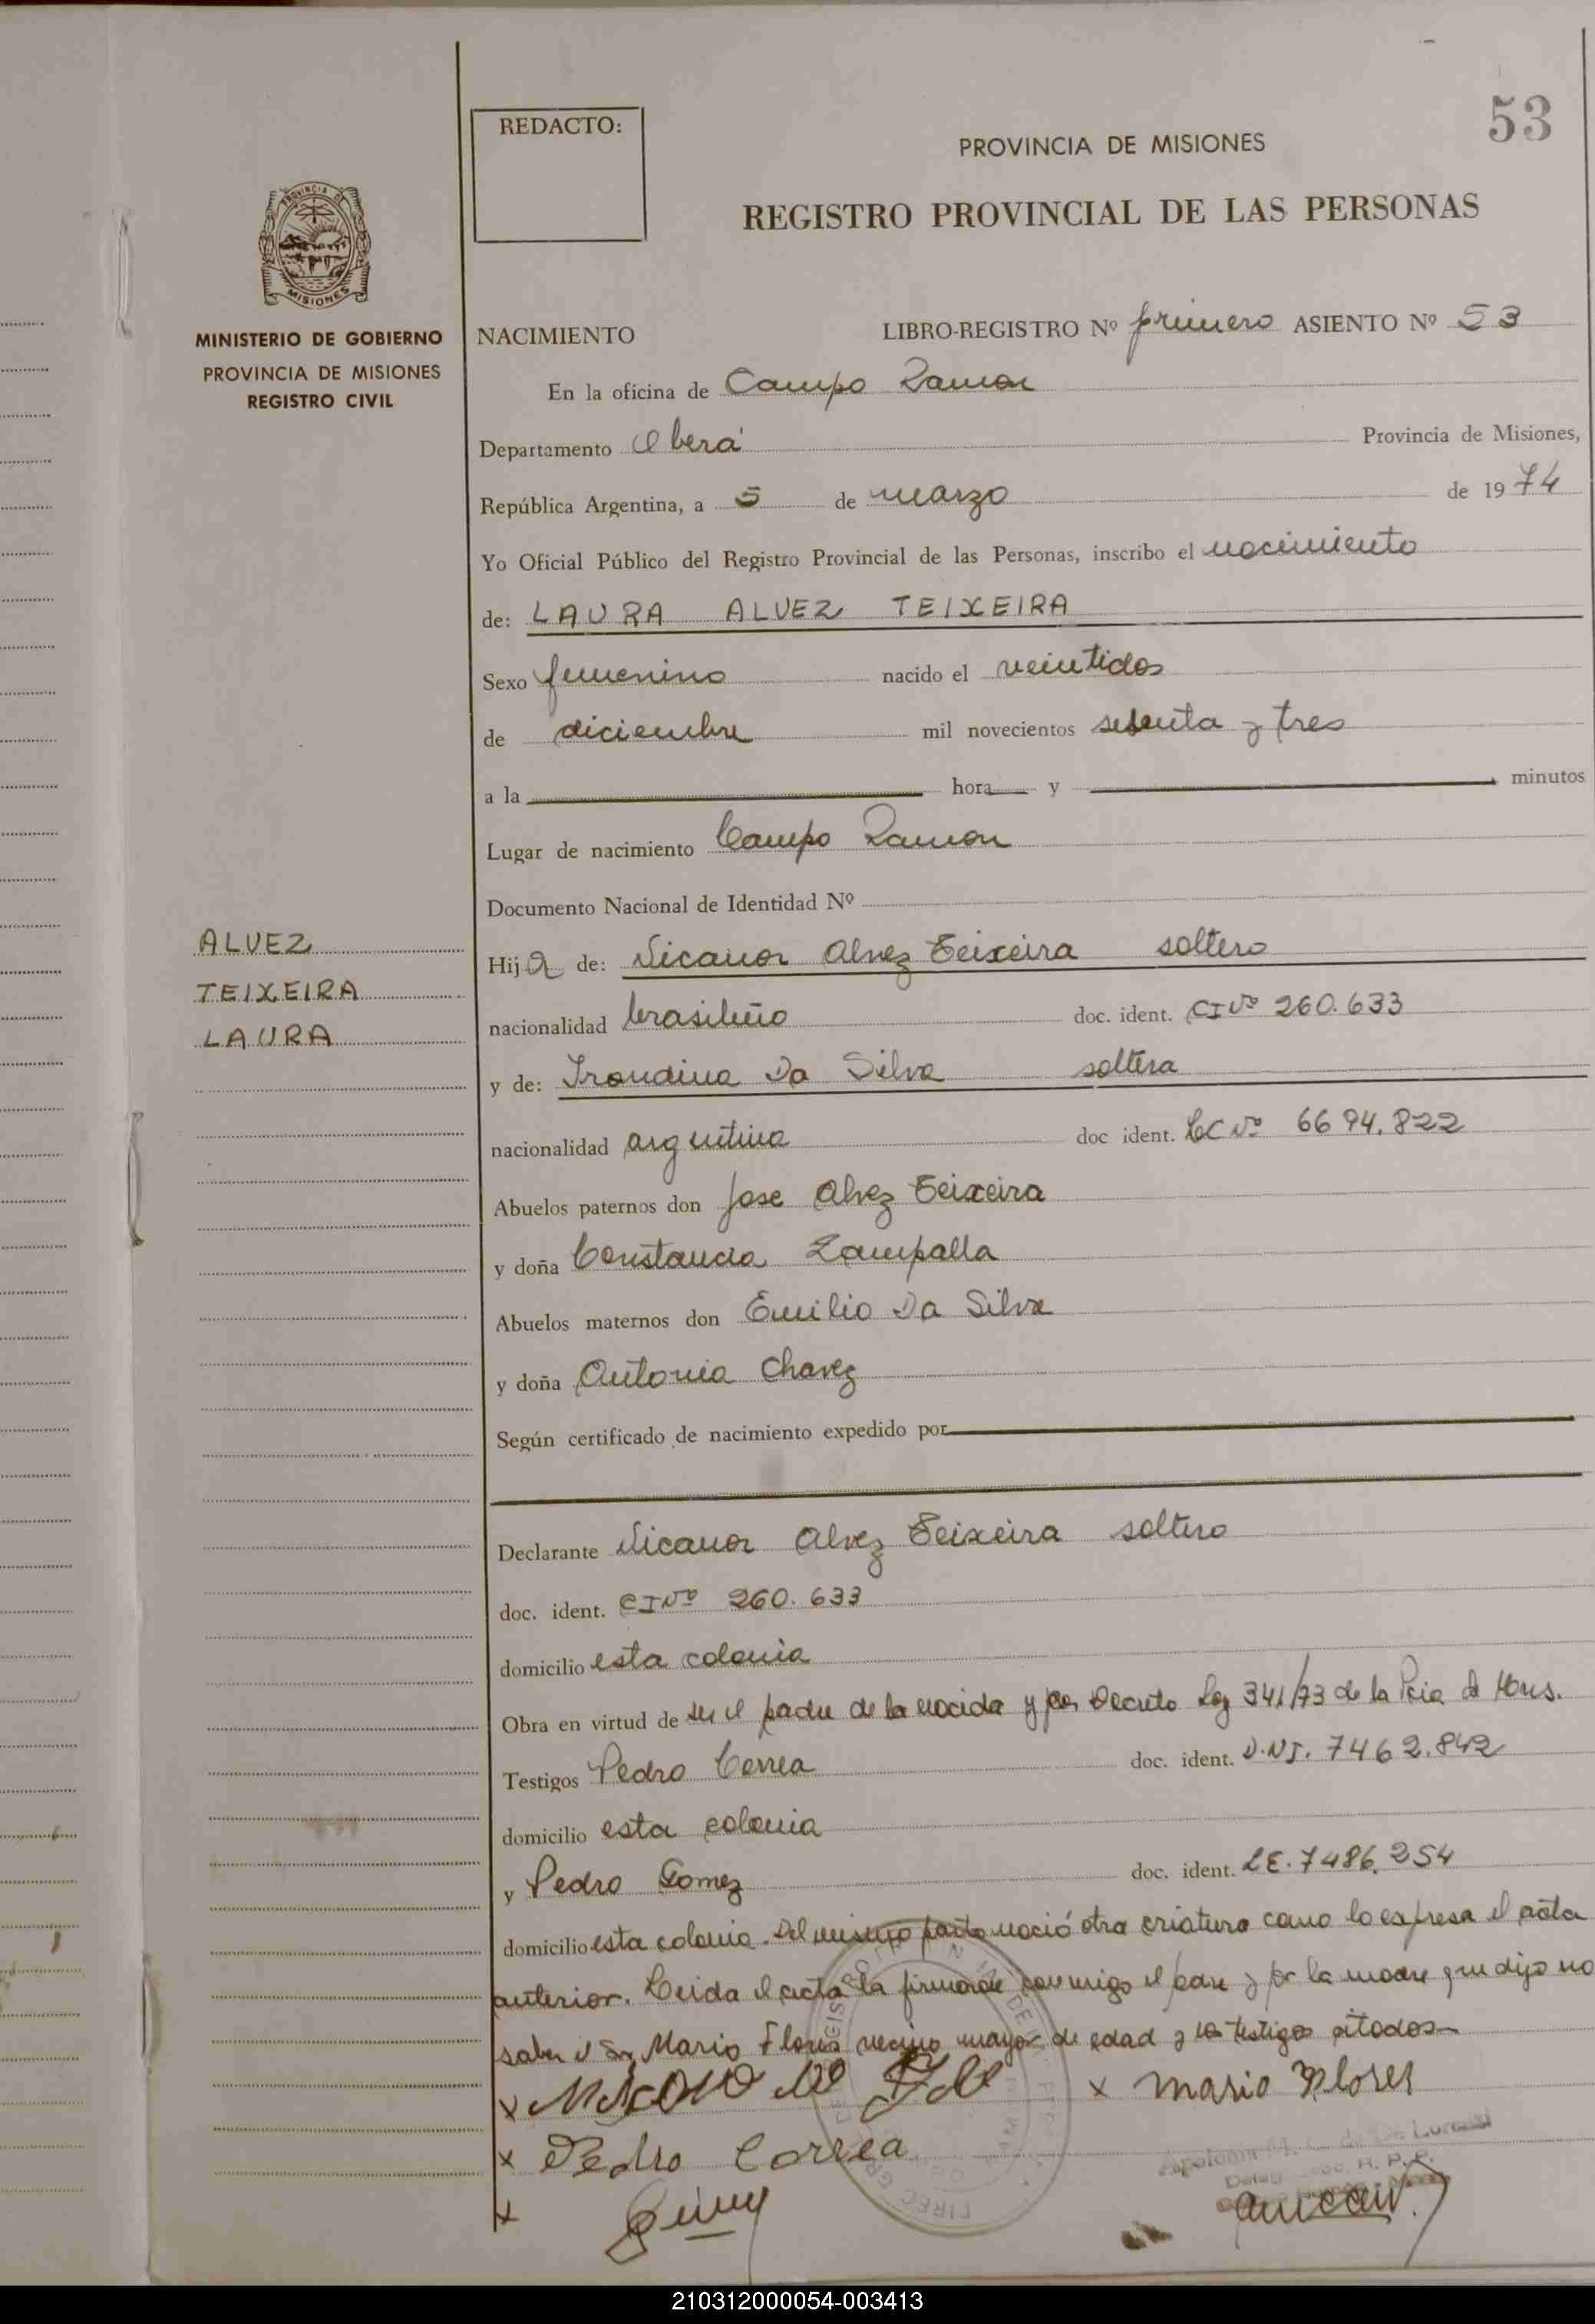 53
REDACTO:
PROVINCIA DE MISIONES
REGISTRO PROVINCIAL DE LAS PERSONAS
PROVINCIA DE
MISIONES
MINISTERIO DE GOBIERNO
PROVINCIA DE MISIONES
REGISTRO CIVIL
NACIMIENTO LIBRO-REGISTRO Nº primero ASIENTO Nº 53
En la oficina de Campo Ramon
Departamento Oberá Provincia de Misiones,
República Argentina, a 5 de marzo de 1974
Yo Oficial Público del Registro Provincial de las Personas, inscribo el nacimiento
de: LAURA ALVEZ TEIXEIRA
Sexo femenino nacido el veintidos
de diciembre mil novecientos setenta y tres
a la hora y minutos
Lugar de nacimiento Campo Ramon
Documento Nacional de Identidad Nº
ALVEZ
TEIXEIRA
LAURA
Hija de: Nicanor Alvez Teixeira soltero
nacionalidad brasileño doc. ident. CI Nº 260.633
y de: Irondina Da Silva soltera
nacionalidad argentina doc ident. LC Nº 6694.822
Abuelos paternos don Jose Alvez Teixeira
y doña Constancia Zampalla
Abuelos maternos don Emilio Da Silva
y doña Antonia Chavez
Según certificado de nacimiento expedido por
Declarante Nicanor Alvez Teixeira soltero
doc. ident. CI Nº 260.633
domicilio esta colonia
Obra en virtud de ser el padre de la nacida y por Decreto Ley 341/73 de la Pcia de Mnes.
Testigos Pedro Correa doc. ident. D.N.I. 7462.842
domicilio esta colonia
y Pedro Gomez doc. ident. LE. 7486.254
domicilio esta colonia. Del mismo parto nació otra criatura como lo expresa el acta
anterior. Leida el acta la firmaron conmigo el padre y por la madre que dijo no
saber el Sr. Mario Flores vecino mayor de edad y los testigos citados
x x Mario Flores
x Pedro Correa
x
210312000054-003413